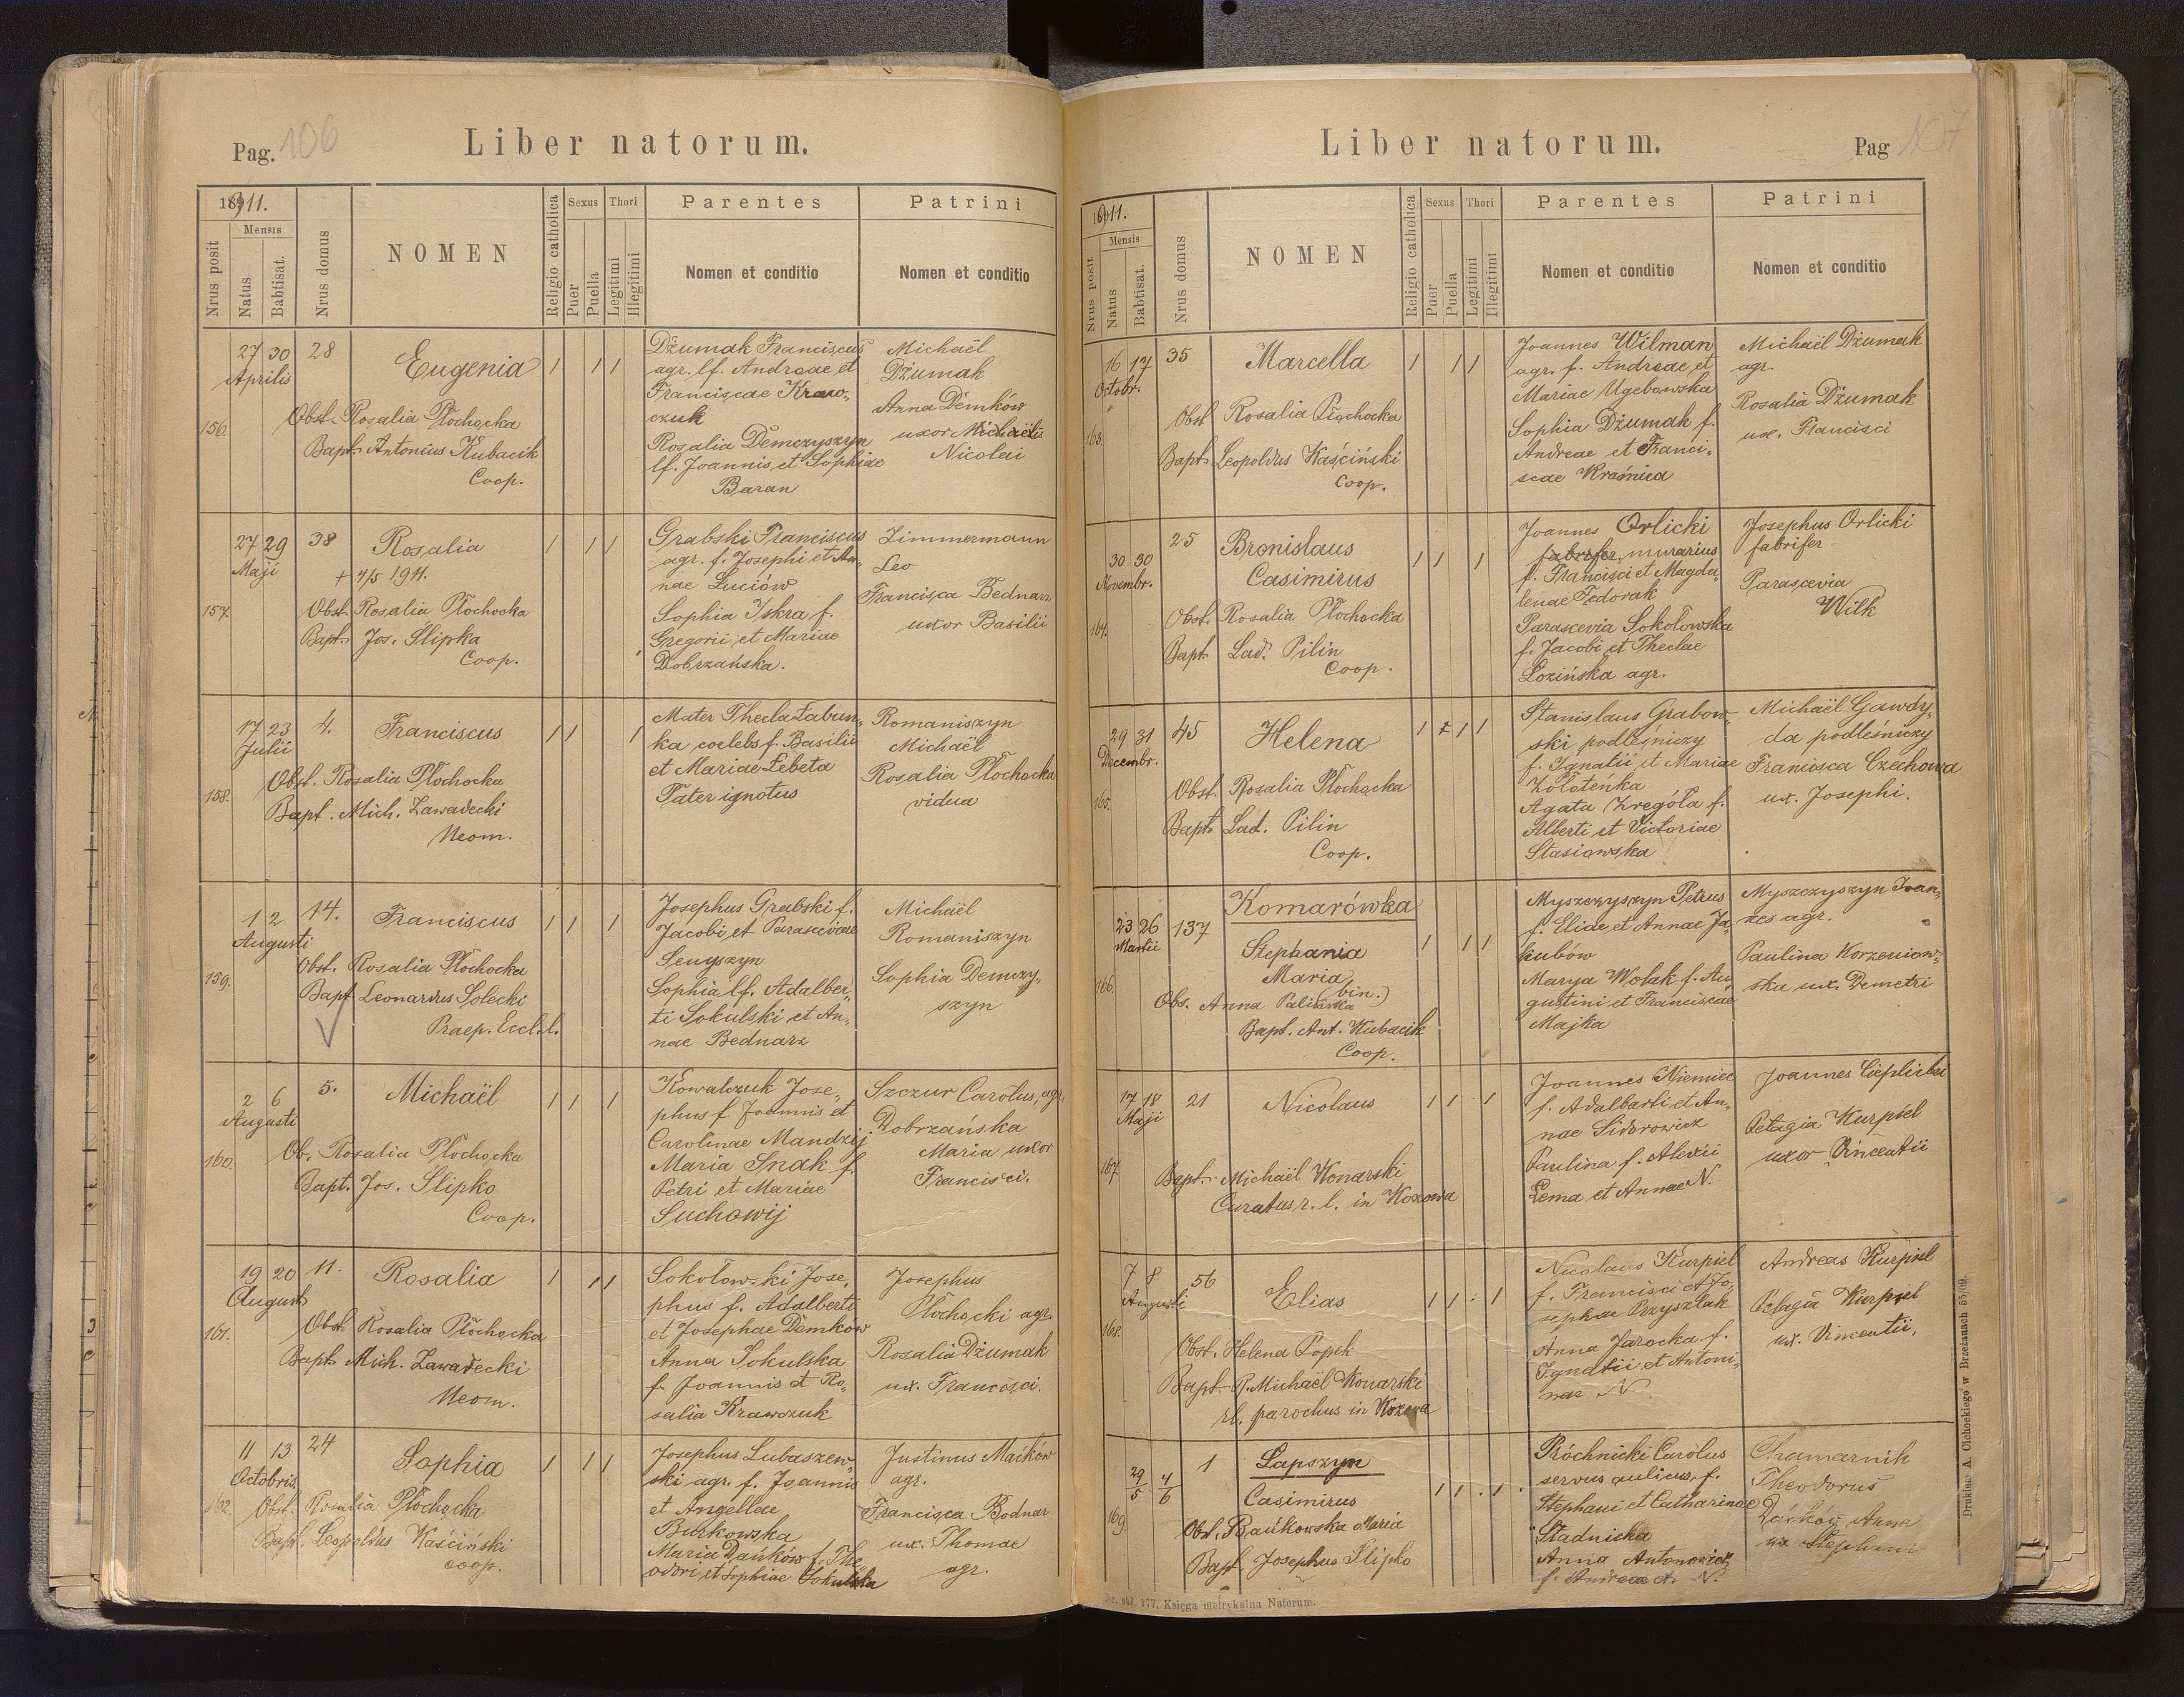 Pag. 106
Liber natorum.
1911.
Nrus posit
Mensis
Natus
Babtisat.
Nrus domus
NOMEN
Religio catholica
Sexus
Puer
Puella
Thori
Legitimi
Illegitimi
Parentes
Nomen et conditio
Patrini
Nomen et conditio
156.
27 30
Aprilis
28
Eugenia
Obst. Rosalia Płochocka
Bapt. Antonius Kubacik
Coop.
Dżumak Franciscus
agr. lf. Andreae et
Franciscae Kraw-
czuk
Rosalia Demczyszyn
lf. Joannis et Sophiae
Baran
Michaël
Dżumak
Anna Demków
uxor Michaëlis
Nicolai
157.
27 29
Maji
38
Rosalia
+ 4/5 1911.
Obst. Rosalia Płochocka
Bapt. Jos. Slipko
Coop.
Grabski Franciscus
agr. f. Josephi et An-
nae Łuciów
Sophia Iskra f.
Gregorii et Mariae
Dobrzańska.
Zimmermann
Leo
Francisca Bednarz
uxor Basilii
158.
17 23
Julii
4.
Franciscus
Obst. Rosalia Płochocka
Bapt. Mich. Zawadecki
Neom.
Mater Thecla Łabun-
ka coelebs f. Basilii
et Mariae Lebeta
Pater ignotus
Romaniszyn
Michaël
Rosalia Płochocka
vidua
159.
1 2
Augusti
14.
Franciscus
Obst. Rosalia Płochocka
Bapt Leonardus Solecki
Praep. Eccl. l.
Josephus Grabski f.
Jacobi et Parasceviae
Senyszyn
Sophia lf. Adalber-
ti Sokulski et An-
nae Bednarz
Michaël
Romaniszyn
Sophia Demczy-
szyn
160.
2 6
Augusti
5.
Michaël
Ob. Rosalia Płochocka
Bapt. Jos. Slipko
Coop.
Kowalczuk Jose-
phus f Joannis et
Carolinae Mandzij
Maria Snak f.
Petri et Mariae
Suchowij
Szczur Carolus, agr.
Dobrzańska
Maria uxor
Francisci.
161.
19 20
August
11.
Rosalia
Obst. Rosalia Płochocka
Bapt. Mich. Zawadecki
Neom.
Sokołowski Jose-
phus f. Adalberti
et Josephae Demków
Anna Sokulska
f. Joannis et Ro-
salia Krawczuk
Josephus
Płochocki agr.
Rosalia Dżumak
ux. Francisci.
162.
11 13
Octobris
24
Sophia
Obst. Rosalia Płochocka
Bapt. Leopoldus Kaściński
coop.
Josephus Lubaszew-
ski agr. f. Joannis
et Angellae
Burkowska
Maria Dańków f. The-
odori et Sophiae Sokulska
Justinus Maćków
agr.
Francisca Bodnar
ux. Thomae
agr.
Liber natorum.
Pag 107
1911.
Nrus posit
Mensis
Natus
Babtisat.
Nrus domus
NOMEN
Religio catholica
Sexus
Puer
Puella
Thori
Legitimi
Illegitimi
Parentes
Nomen et conditio
Patrini
Nomen et conditio
163.
16 17
Octobr.
35
Marcella
Obst Rosalia Płochocka
Bapt Leopoldus Kaściński
Coop.
Joannes Wilman
agr. f. Andreae et
Mariae Ugebowska
Sophia Dżumak f.
Andreae et Franci-
scae Kraśnica
Michaël Dżumak
agr.
Rosalia Dżumak
ux. Francisci
164.
30 30
Novembr.
25
Bronislaus
Casimirus
Obst. Rosalia Płochocka
Bapt Lad. Pilin
Coop.
Joannes Orlicki
fabrifer murarius
f. Francisci et Magda-
lenae Fedorak
Parascevia Sokołowska
f. Jacobi et Theclae
Łozińska agr.
Josephus Orlicki
fabrifer
Parascevia
Wilk
165.
29 31
Decembr.
45
Helena
Obst. Rosalia Płochocka
Bapt Lad. Pilin
Coop.
Stanislaus Grabow-
ski podleśniczy
f. Ignatii et Mariae
Zołoteńka
Agata Zregóła f.
Alberti et Victoriae
Stasiowska
Michaël Gawdy-
da podleśniczy
Francisca Czechowa
ux. Josephi.
166.
23 26
Martii
137
Komarówka
Stephania
Maria
(bin.)
Obs. Anna Palińska
Bapt. Ant. Kubacik
Coop.
Myszczyszyn Petrus
f. Eliae et Annae Ja-
kubów
Marya Wolak f. Au-
gustini et Franciscae
Majka
Myszczyszyn Joan-
nes agr.
Paulina Korzeniow-
ska ux. Demetri
167.
17 18
Maji
21
Nicolaus
Bapt. Michaël Konarski
Curatus r. l. in Kozowa
Joannes Niemiec
f. Adalberti et An-
nae Sidorowicz
Paulina f. Alexii
Lema et Annae N.
Joannes Cieplicki
Pelagia Kurpiel
uxor Vincentii
168.
7 8
Augusti
56
Elias
Obst. Helena Popek
Bapt. R. Michaël Konarski
rl. parochus in Kozowa
Nicolaus Kurpiel
f. Francisci et Jo-
sephae Przyszlak
Anna Jarocka f.
Ignatii et Antoni-
nae N
Andreas Kurpiel
Pelagia Kurpiel
ux. Vincentii.
169.
29/5 4/6
1
Lapszyn
Casimirus
Obst. Bańkowska Maria
Bapt Josephus Slipko
Próchnicki Carolus
servus aulicus, f.
Stephani et Catharinae
Stadnicka
Anna Antonowicz
f. Andreae et N.
Chamarnik
Theodorus
Anna
ux Stephani
Drukiem A. Cichockiego w Brzeżanach 55/09.
Nr. skł. 177. Księga metrykalna Natorum.